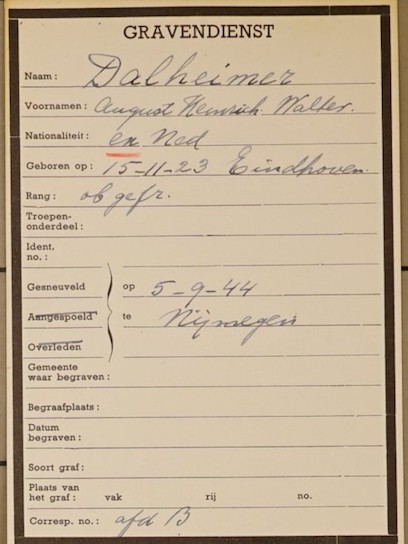 GRAVENDIENST
Naam : Dalheimer
Voornamen : August Heinrich Walter.
Nationaliteit : ex Ned
Geboren op : 15-11-23 Eindhoven.
Rang : ob gefr.
Troepen-
onderdeel :
Ident.
no. :
Gesneuveld op 5-9-44
Aangespoeld te Nijmegen
Overleden
Gemeente
waar begraven :
Begraafplaats :
Datum
begraven :
Soort graf :
Plaats van
het graf : vak rij no.
Corresp. no. : afd B